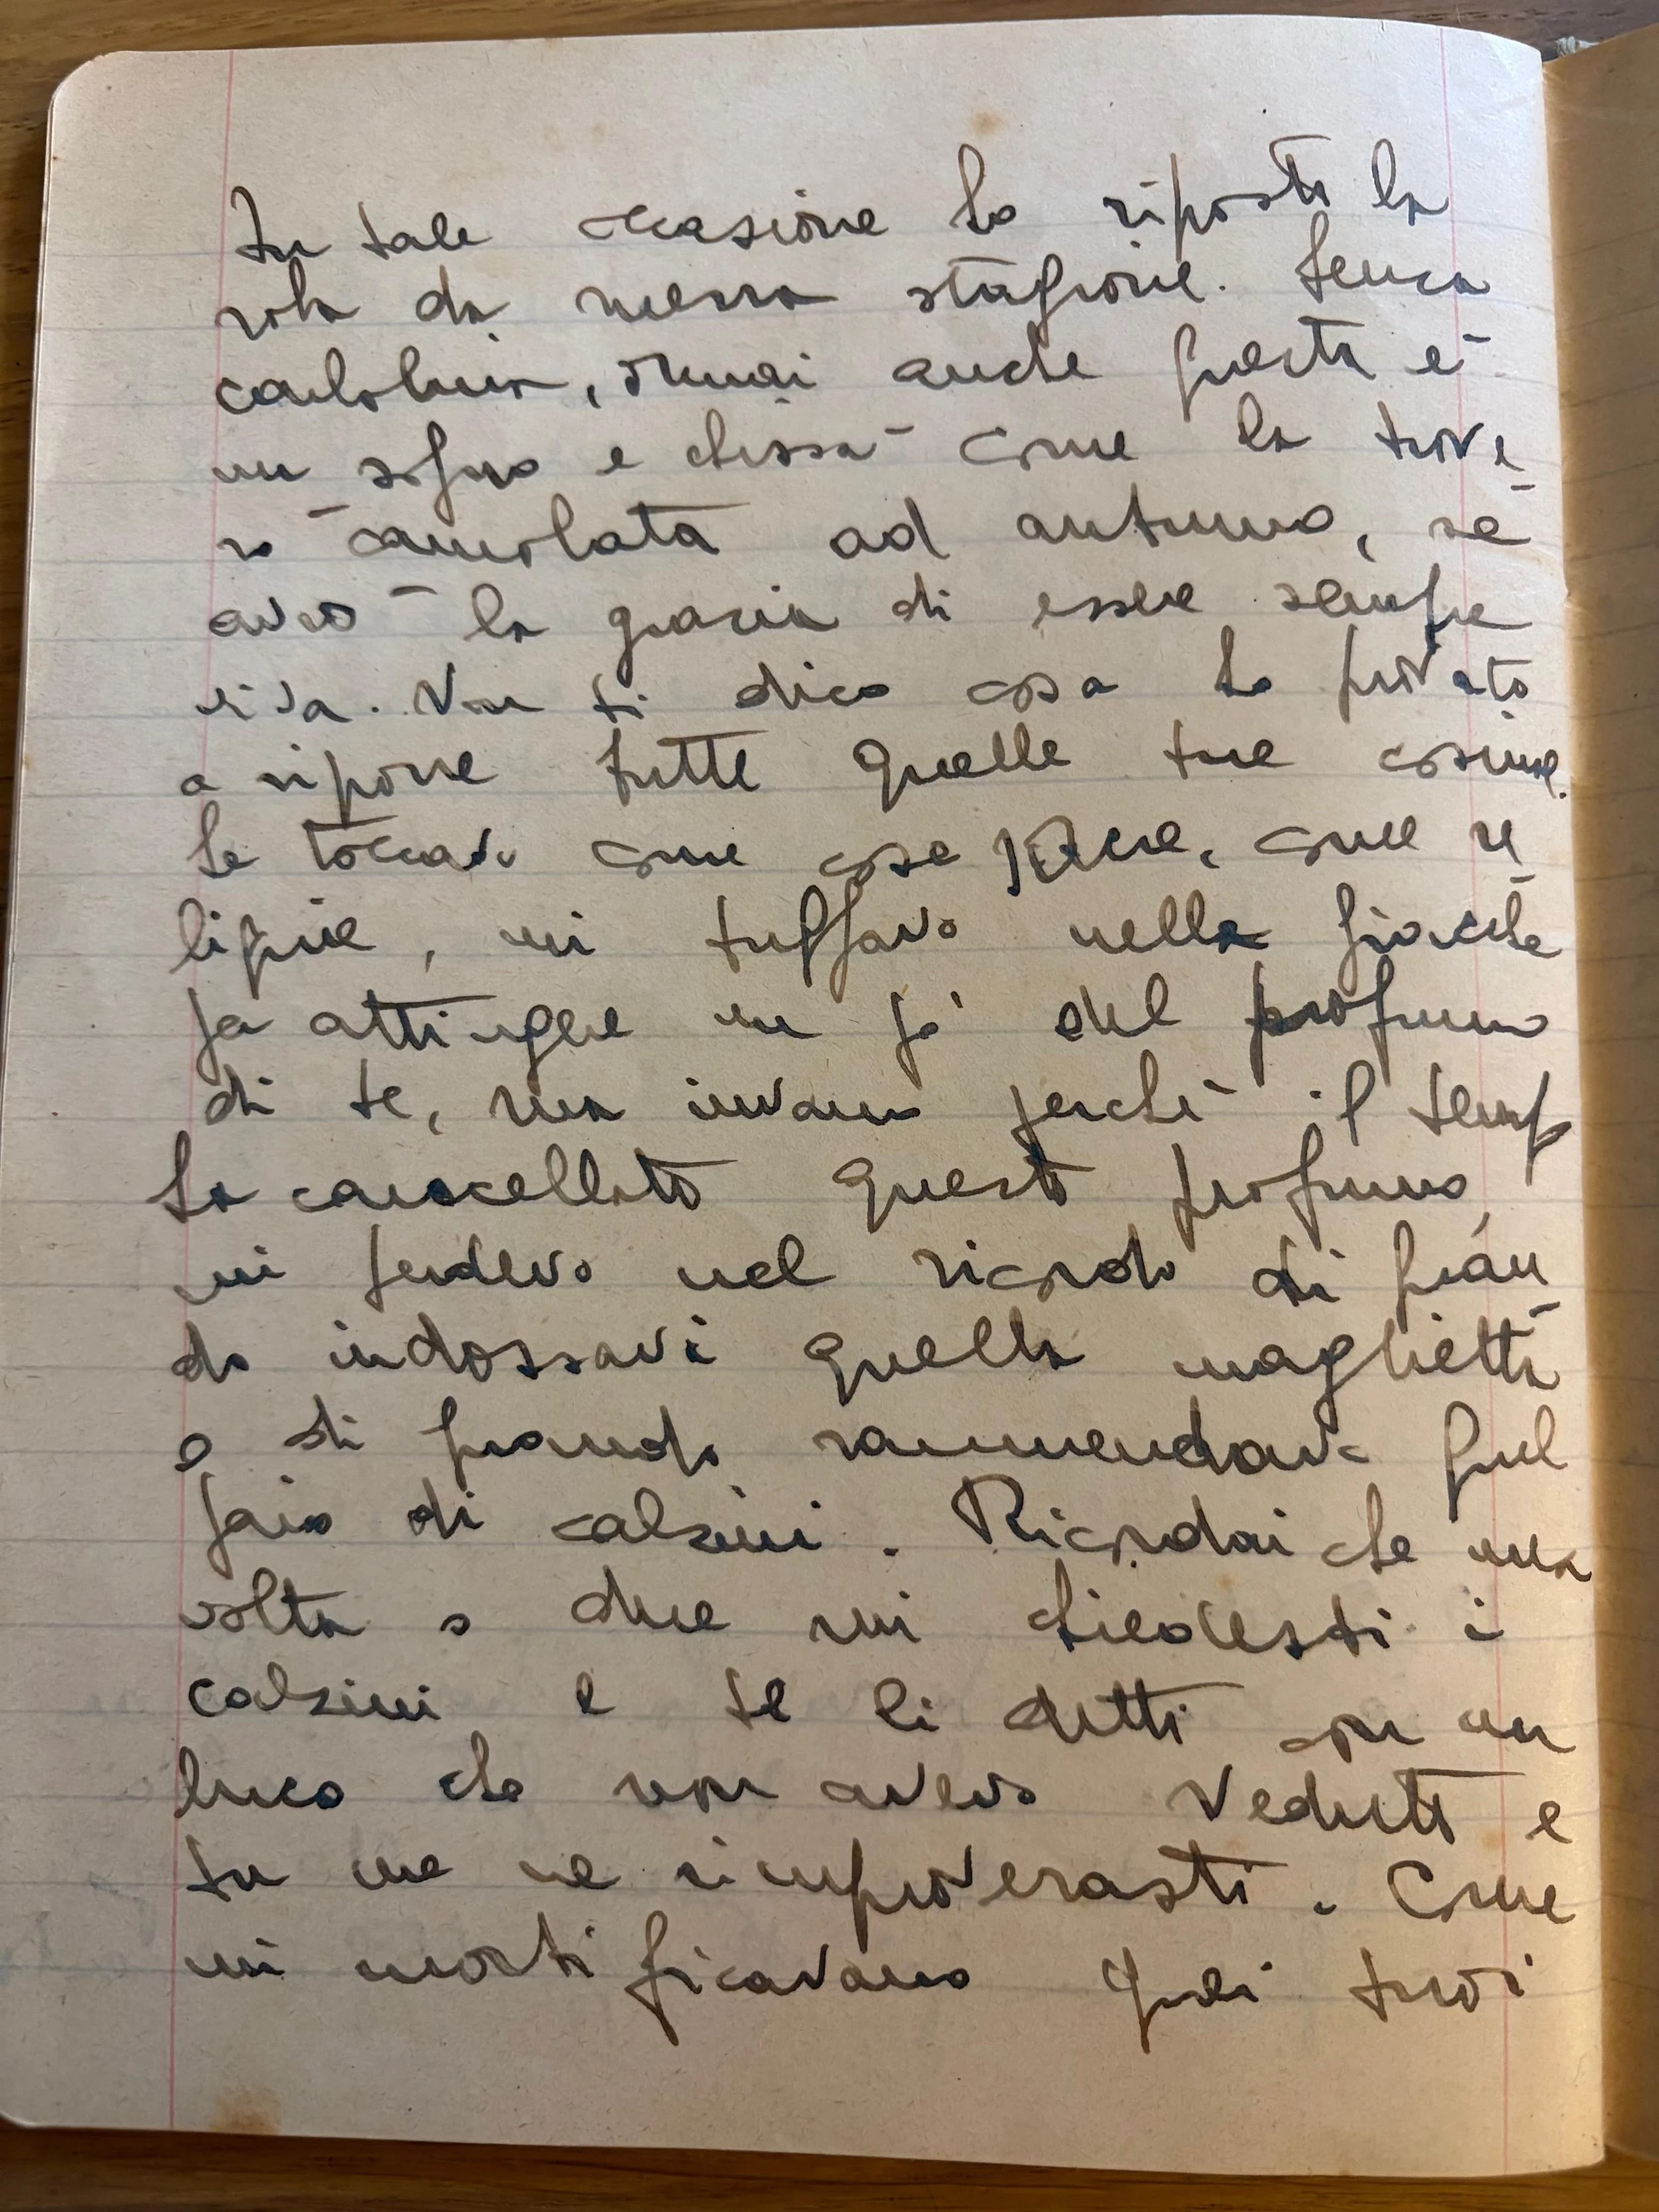 In tale occasione ho riposto la
roba da mezza stagione. Senza
canfolina, ormai anche questa è
un sogno e chissà come la trove-
rò camolata ad autunno, se
avrò la grazia di essere sempre
viva. Non ti dico cosa ho provato
a riporre tutte quelle tue cosine.
Le toccavo come cose sacre, come re-
liquie, mi tuffavo nelle giacche
pa attingere un po' del profumo
di te, ma invano perchè il temp
ha cancellato questo profumo,
mi perdevo nel ricordo di quan-
do indossavi quella maglietta
o di quando rammendavo quel
paio di calzini. Ricordai che una
volta o due mi chiedesti i
calzini e te li detti con un
buco che non avevo veduto e
tu me ne rimproverasti. Come
mi mortificavano quei tuoi